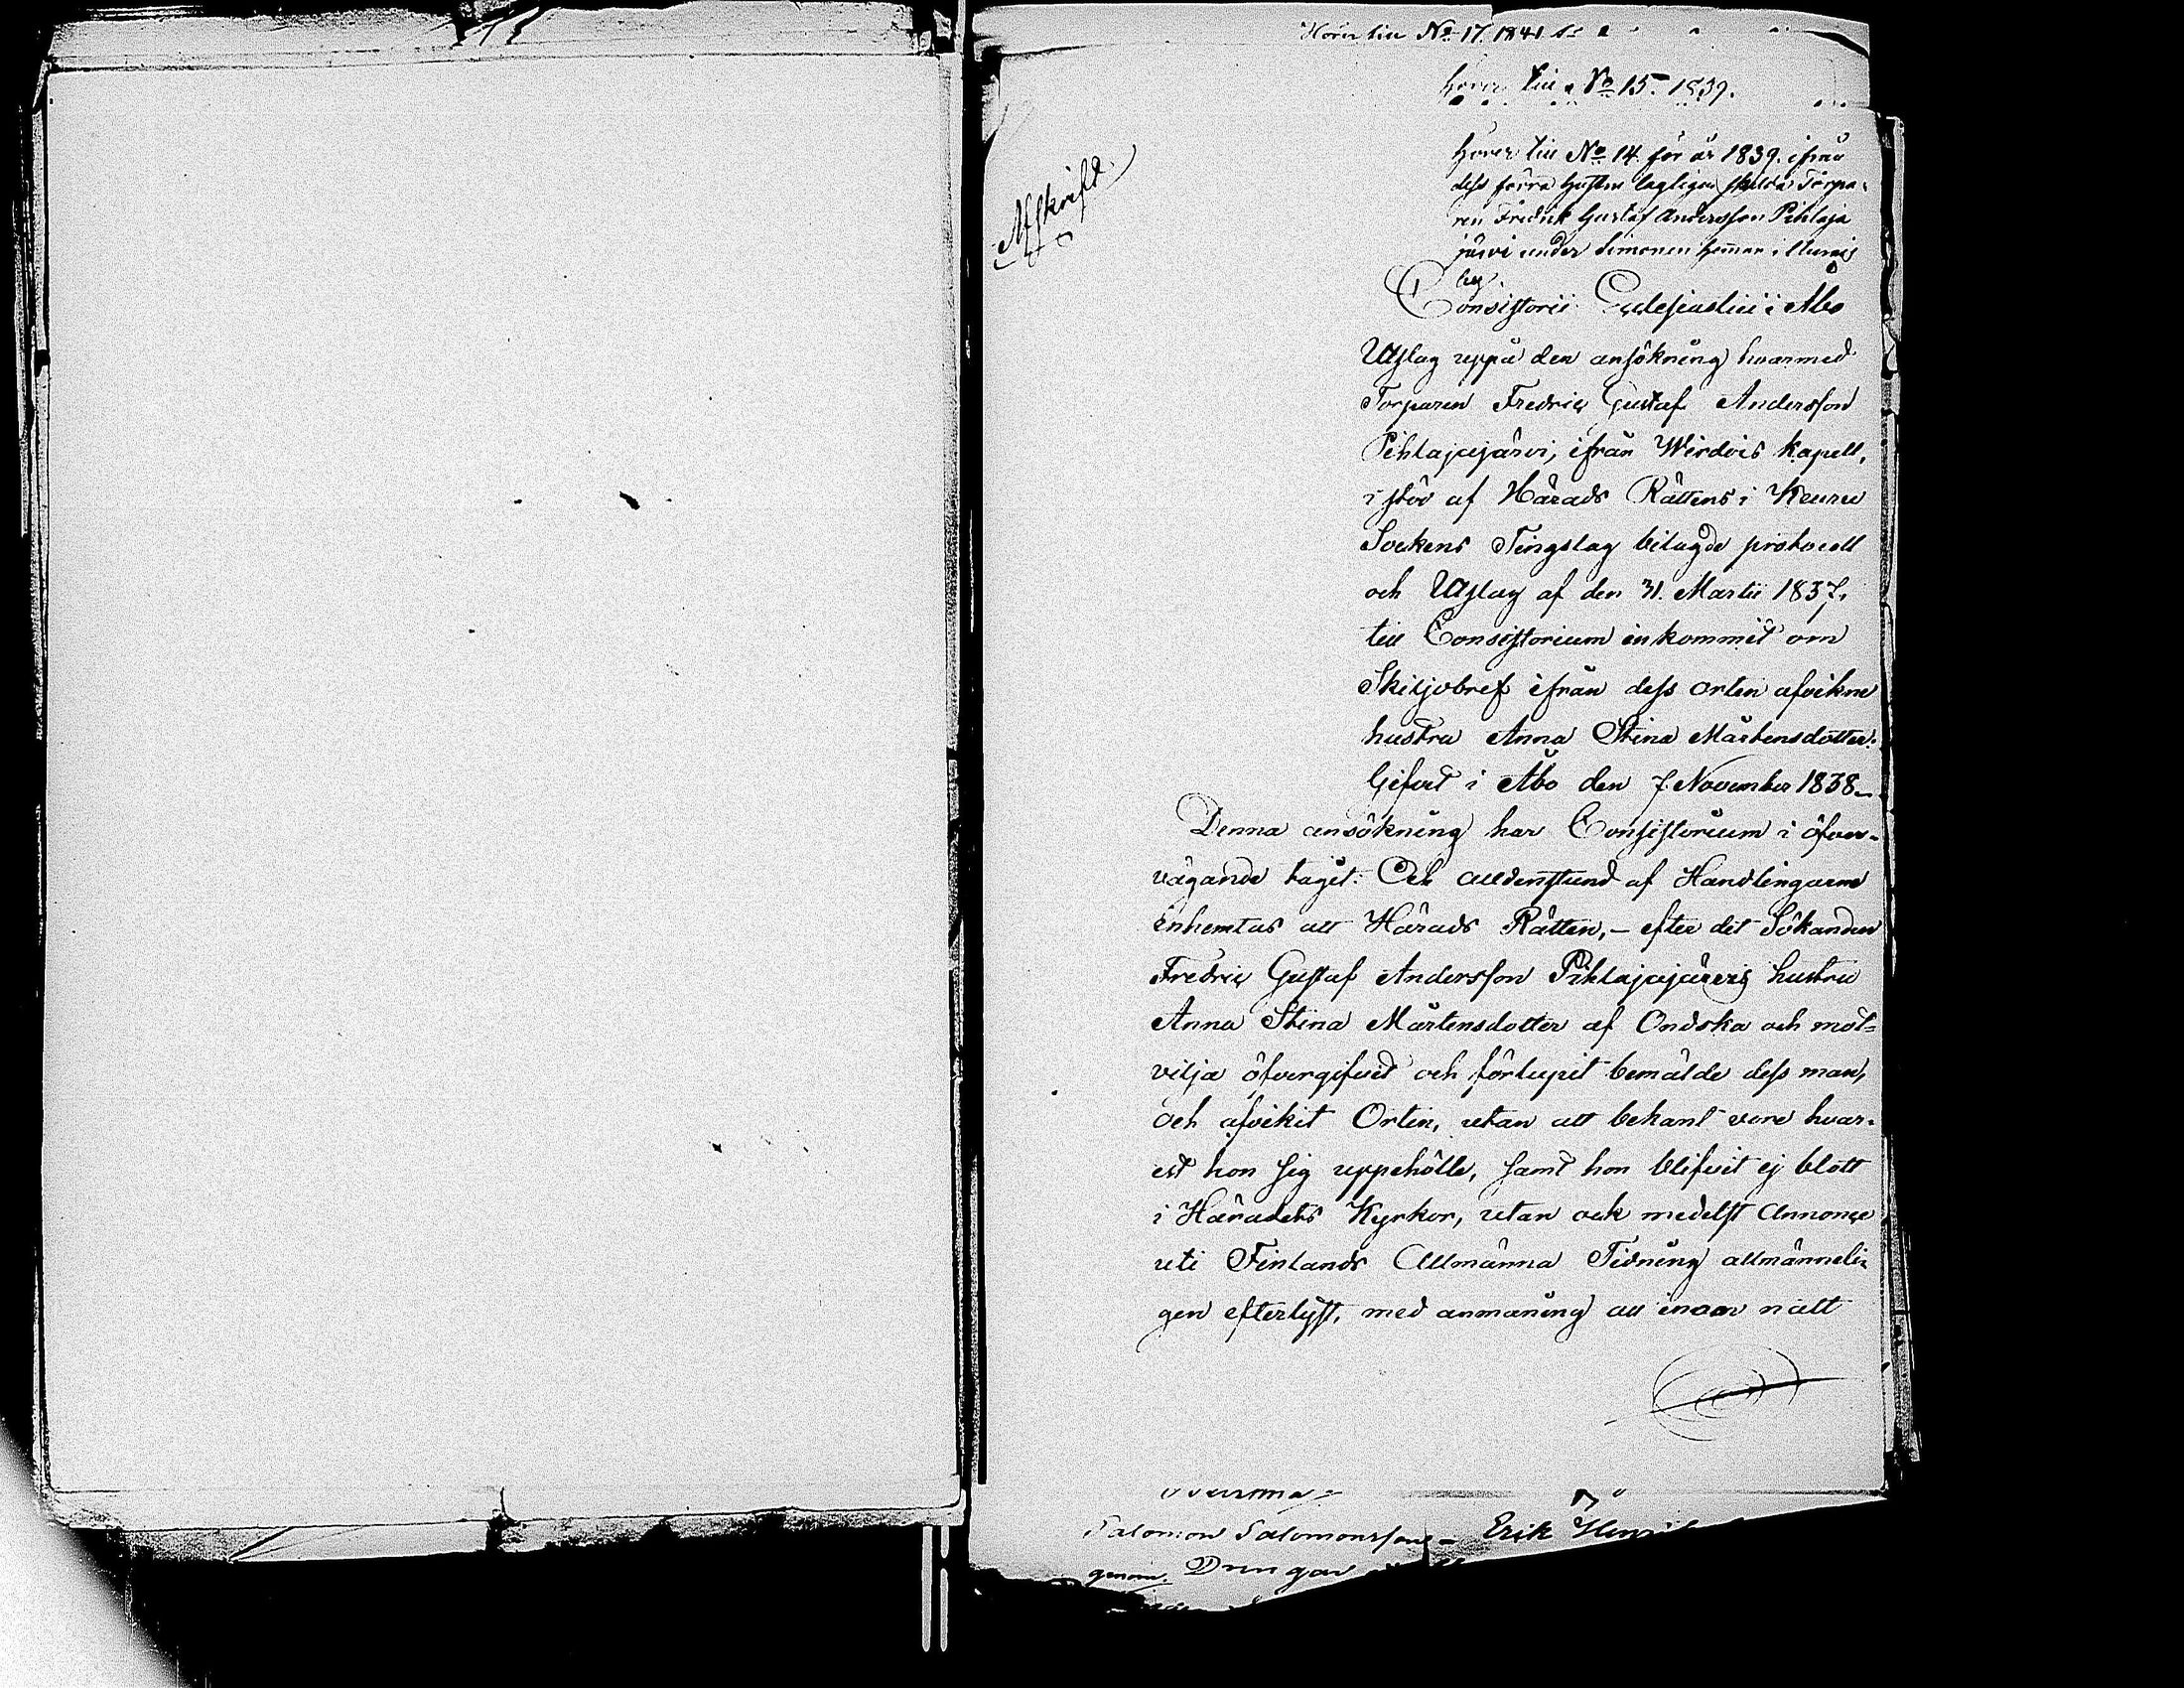 Hörer till No 17. 1841
hörer till No 15. 1839.
hörer till No 14. för år 1839. ifrån
dess förra hustru lagligen skilda Torpa-
ren Fredrik Gustaf Andersson Pihlaja
järvi under Simonen hemman i
by.
Afskrift.
Consistorii Ecclesiastici i Åbo
Utslag uppå den ansökning hvarmed
Torparen Fredric Gustaf Andersson
Pihlajajärvi, ifrån Wirdois kapell,
i stöd af Härads Rättens i Keuru
Sockens Tingslag bilagde protocoll
och Utslag af den 31. Martii 1837,
till Consistorium inkommit om
Skiljobref ifrån dess orten afvikne
hustru Anna Stina Mårtensdotter.
Gifvet i Åbo den 7. November 1838.
Denna ansökning har Consistorium i öfver-
vägande tagit: Och alldenstund af Handlingarne
inhemtas att Härads Rätten, - efter det Sökanden
Fredric Gustaf Andersson Pihlajajärvis hustru
Anna Stina Mårtensdotter af Ondska och mot-
vilja öfvergifvit och förlupit bemälde dess man,
och afvikit Orten, utan att bekant vore hvar-
est hon sig uppehölle, samt hon blifvit ej blott
i Häradets Kyrkor, utan ock medelst Annonce
uti Finlands Allmänna Tidning allmänneli-
gen efterlyst, med anmaning att inom natt
Salomon Salomonsson - Erik
genom. Drengar